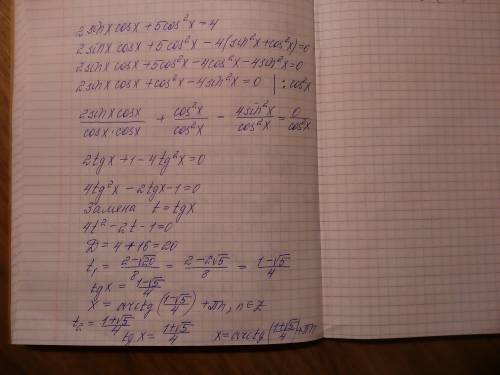 2sinx cosx + 5cos²x = 4
2sinx cosx + 5cos²x - 4(sin²x + cos²x) = 0
2sinx cosx + 5cos²x - 4cos²x - 4sin²x = 0
2sinx cosx + cos²x - 4sin²x = 0 | : cos²x
2sinx cosx / cosx·cosx + cos²x / cos²x - 4sin²x / cos²x = 0 / cos²x
2tgx + 1 - 4tg²x = 0
4tg²x - 2tgx - 1 = 0
Замена t = tgx
4t² - 2t - 1 = 0
D = 4 + 16 = 20
t₁ = (2-√20)/8 = (2-2√5)/8 = (1-√5)/4
tgx = (1-√5)/4
x = arctg((1-√5)/4) + πn, n∈Z
t₂ = (1+√5)/4
tgx = (1+√5)/4 x = arctg((1+√5)/4) + πn